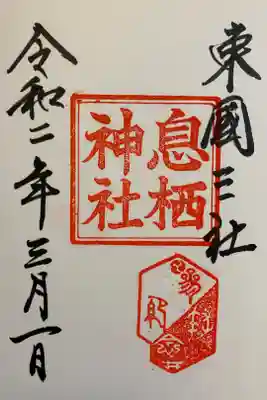 東國三社
息栖
神社
令和二年三月一日